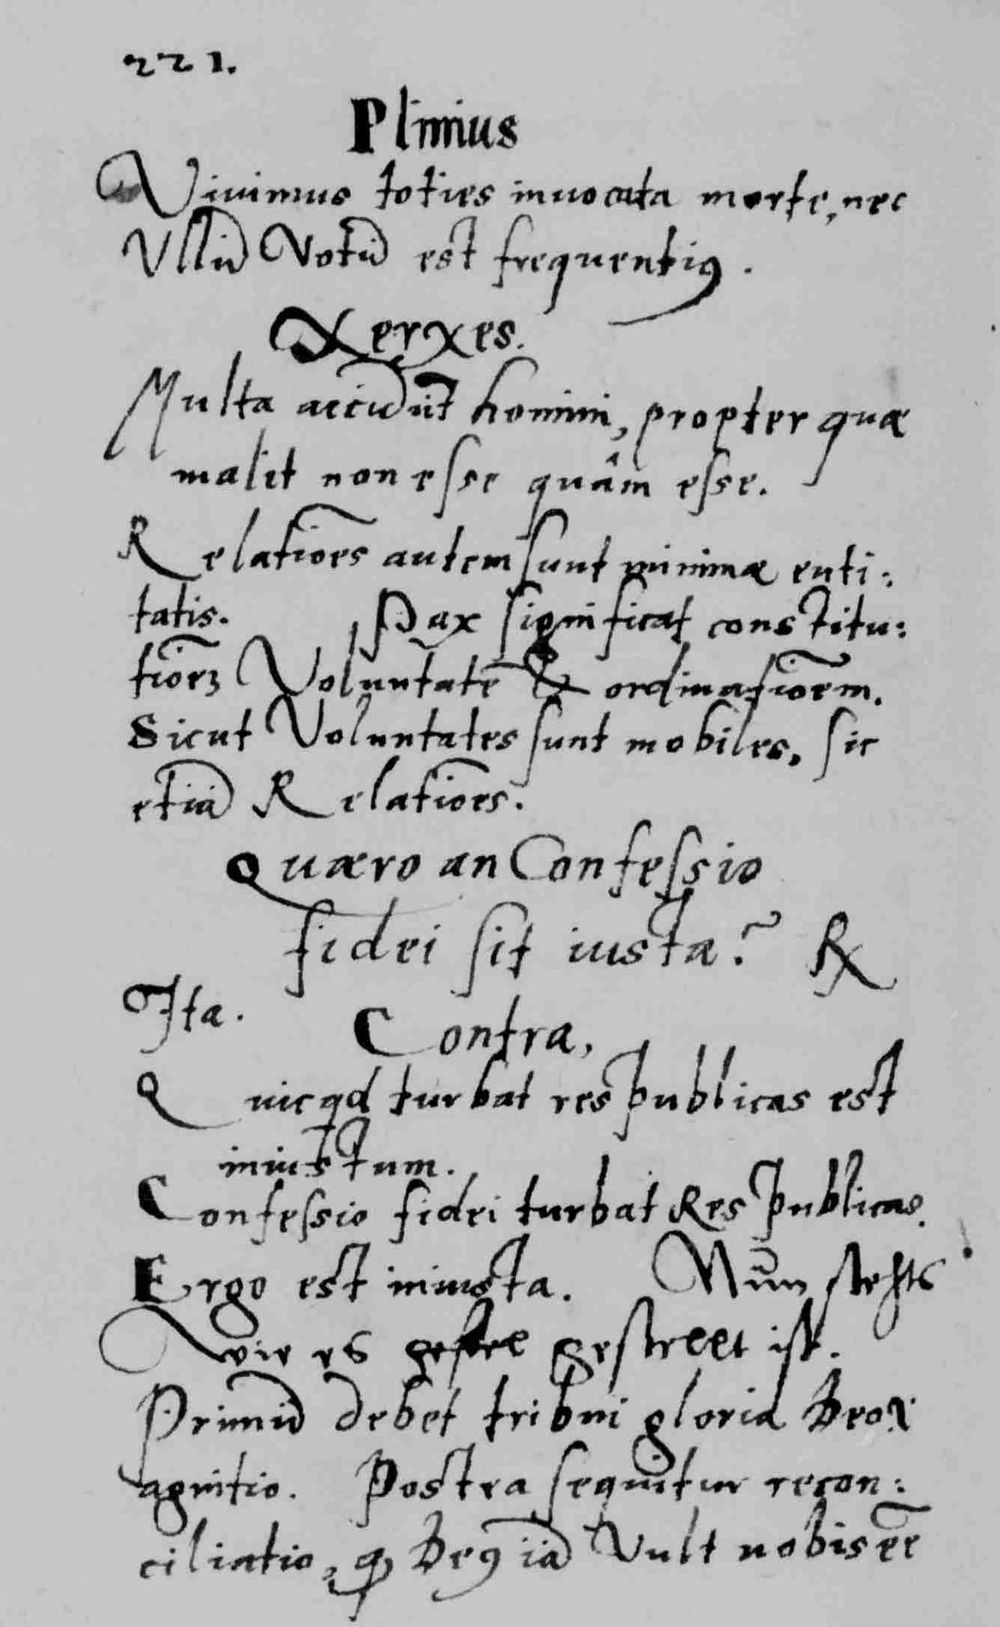 221.
Plinius
Viuimus toties inuocata morte, nec
Vllũ Votũ est frequentiꝰ.
Xerxes.
Multa accidũt homini, propter quæ
malit non esse quâm esse.
Relatioẽs autem sunt minimæ enti:
tatis. Pax significat constitu:
tioẽʒ Voluntatẽ & ordinatioẽm.
Sicut Voluntates sunt mobiles, sic
etiã Relatioẽs.
Quæro an Confessio
fidei sit iusta? ℞
Ita. Contra,
Quicqd turbat respublicas est
iniustum.
Confessio fidei turbat Respublicas.
Ergo est iniusta. Nun stehts
wie es gestreet ist.
Primũ debet tribui gloria Deo &
agnitio. Postea sequitur recon:
ciliatio, ꝙ Deꝰ iã Vult nobis eẽ